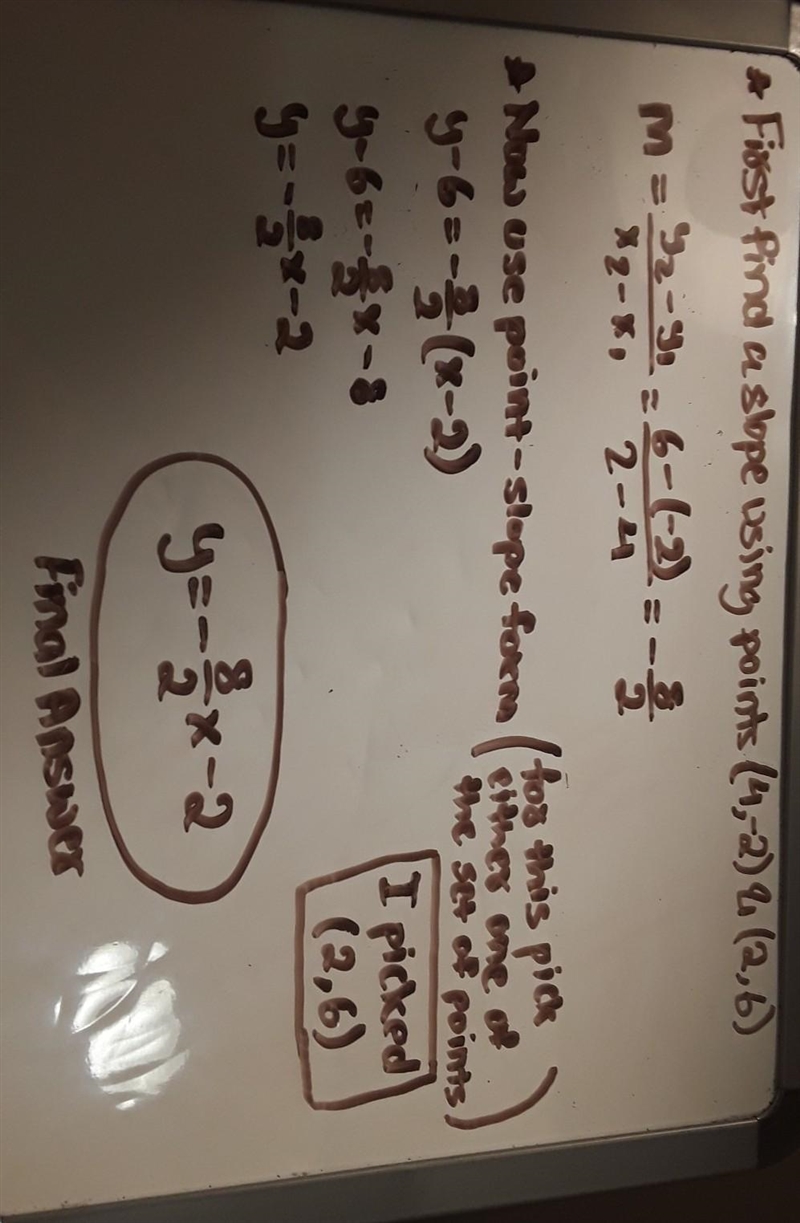 * First find a slope using points (4,-2) & (2,6)
m = y₂-y₁/x₂-x₁ = 6-(-2)/2-4 = -8/2
* Now use point-slope form (for this pick either one of the set of points)
y-6 = -8/2(x-2)
I picked (2,6)
y-6 = -8/2x-8
y = -8/2x-2
y = -8/2x-2
Final Answer